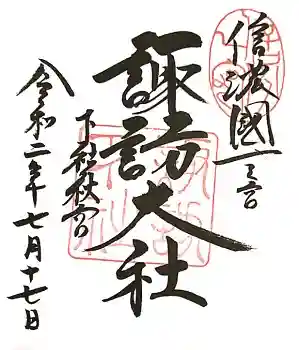 信濃國一之宮
諏訪大社
下社秋宮
令和二年七月十七日